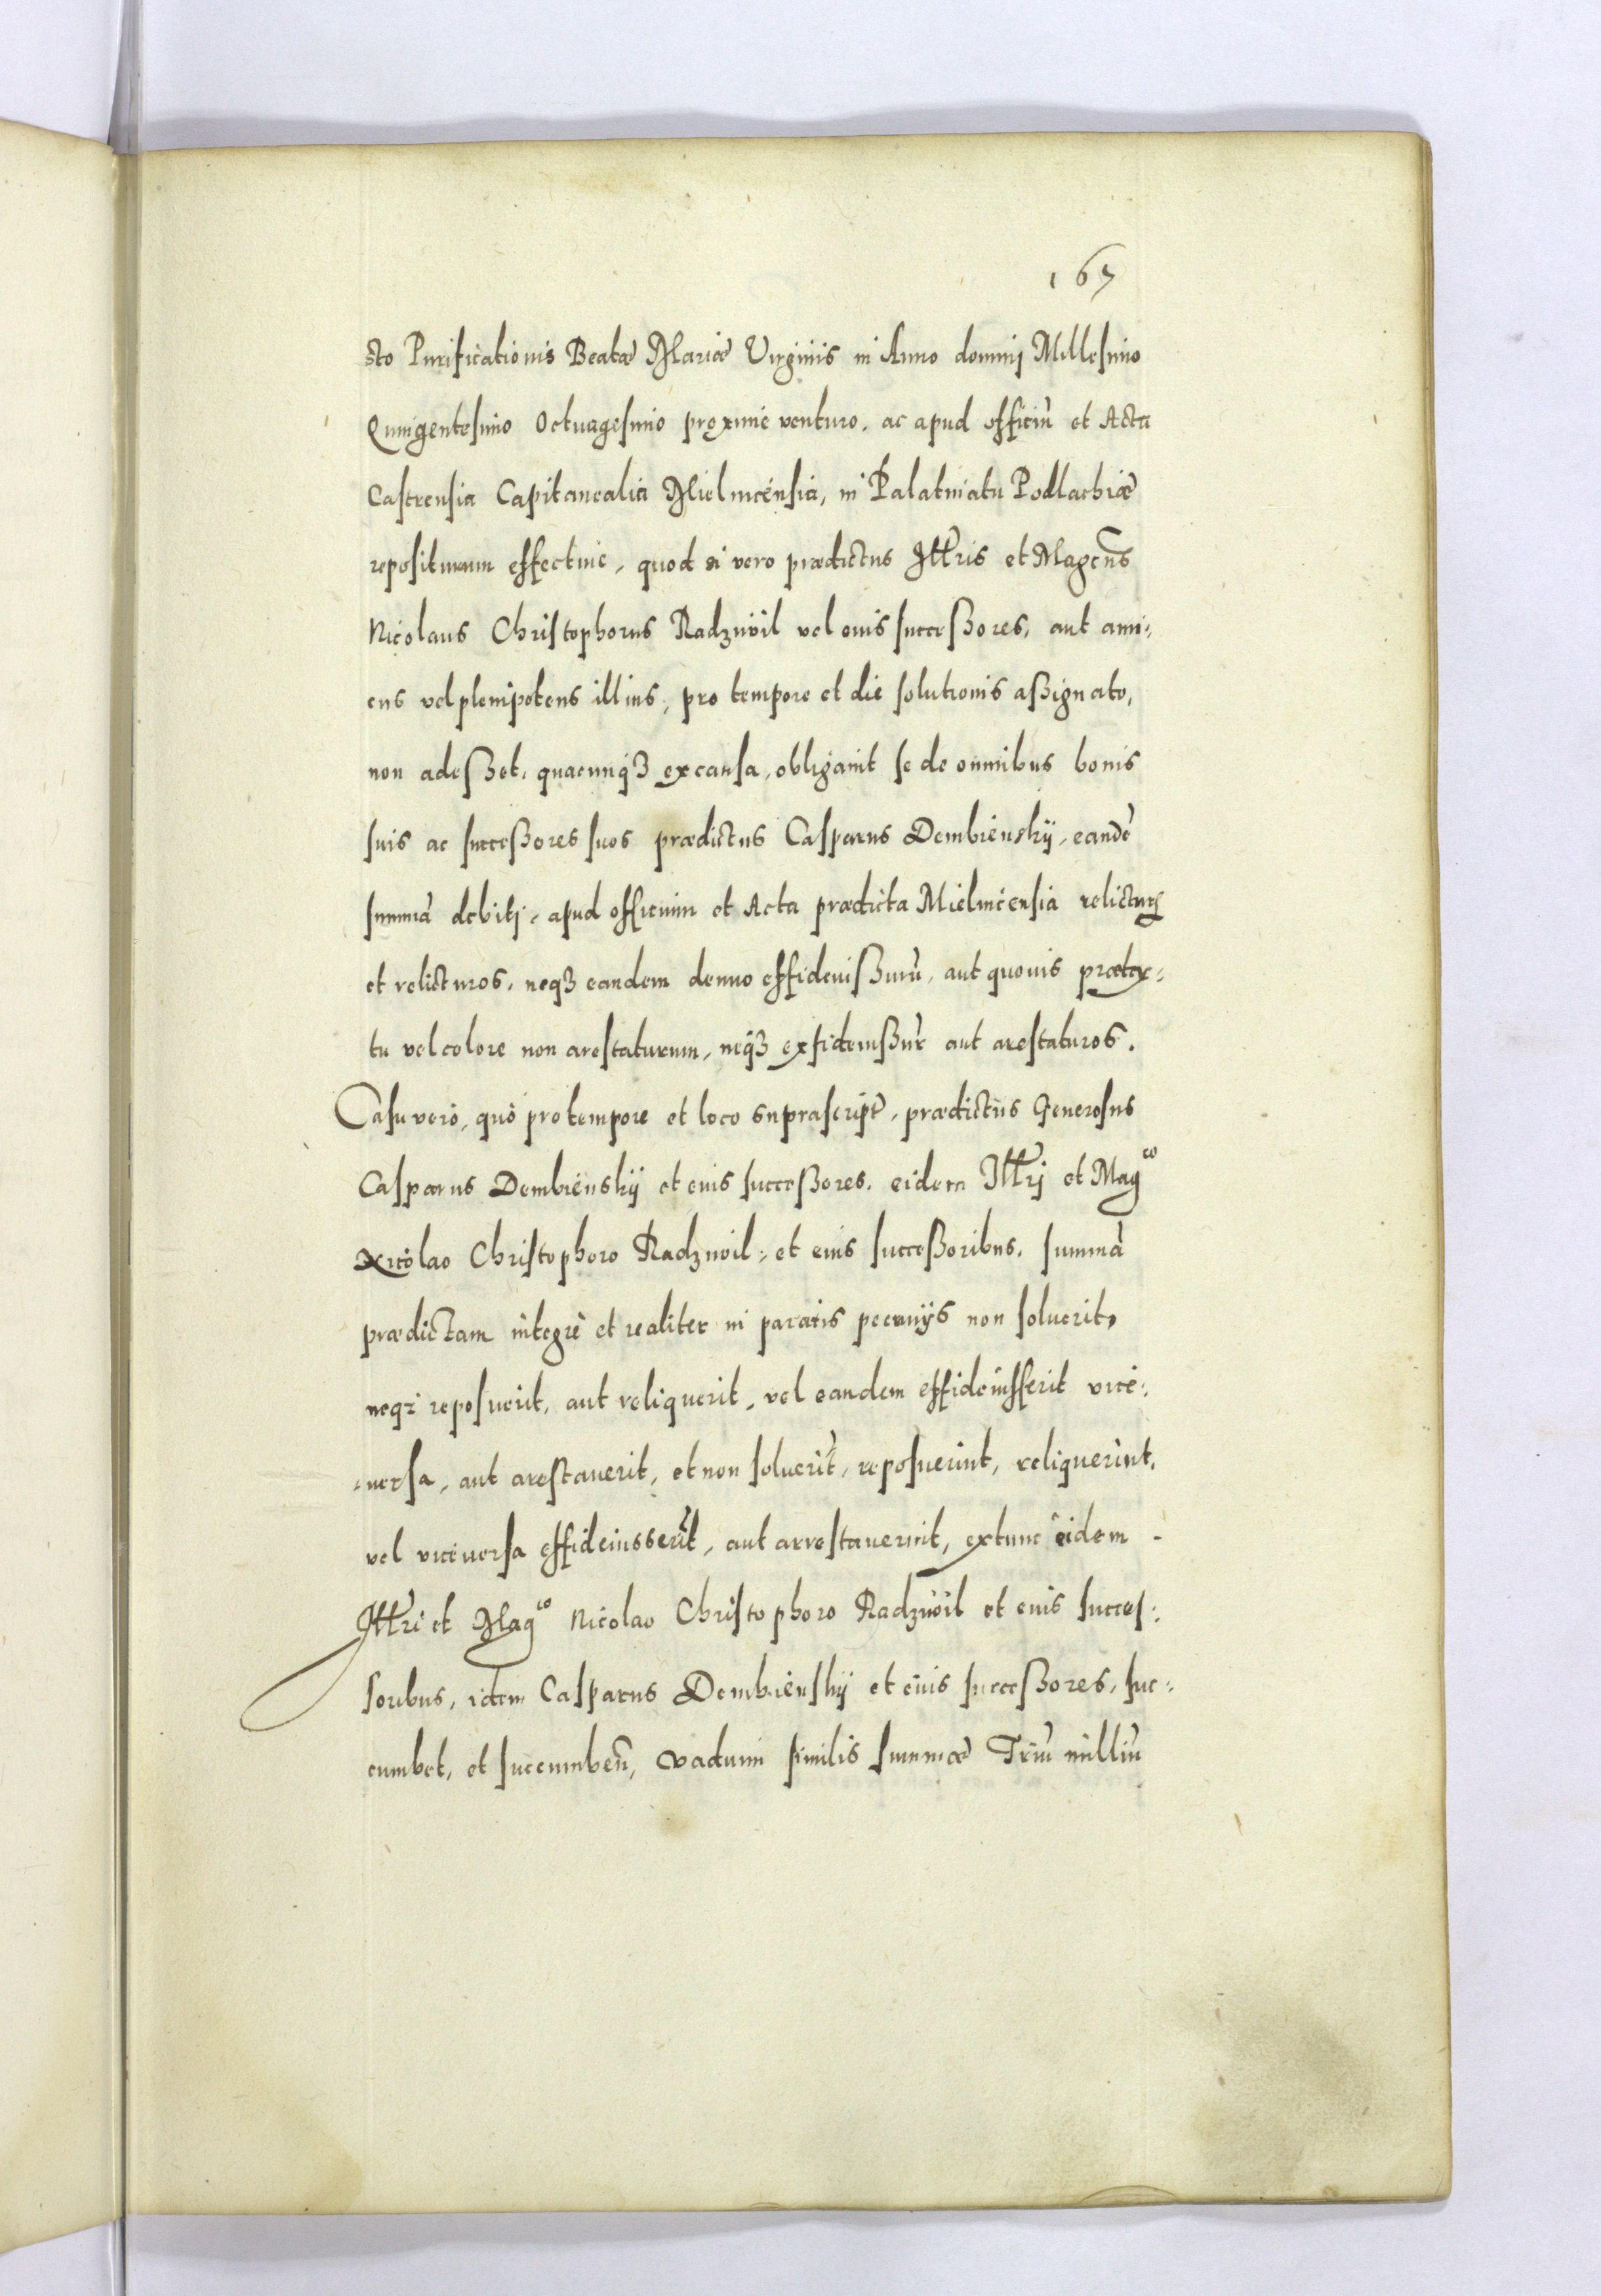 167
sto Purificationis Beatæ Mariæ Virginis in Anno dominj Millesimo
Quingentesimo Octuagesimo proxime venturo, ac apud officiũ et Acta
Castrensia Capitanealia Mielnicensia, in Palatinatu Podlachiæ
repositurum effectiue, quod si vero prædictus Illris et Magcus
Nicolaus Christophorus Radziwil vel euis successores, aut ami:
cus vel plenipotens illius, pro tempore et die solutionis assignato,
non adesset, quacunq3 ex causa, obligauit se de omnibus bonis
suis ac successores suos prædictus Casparus Dembienskÿ, eandẽ
summã debitj, apud officium et Acta prædicta Mielnicensia relicturũ
et relicturos, neq3 eandem denuo effideiussurũ, aut quouis prætex:
tu vel colore non arestaturum, neq3 exfideiussur aut arestaturos.
Casu vero, quo pro tempore et loco suprascript, prædictus Generosus
Casparus Dembienskÿ et euis successores, eidem Illrj et Magco
Nicolao Christophoro Radziwil, et euis successoribus, summã
prædictam integrè et realiter in paratis pecunijs non soluerit,
neq3 reposuerit, aut reliquerit, vel eandem effideiusserit vice:
:uersa, aut arestauerit, et non soluerĩt, reposuerint, reliquerint,
vel viceuersa effideiusserĩt, aut arrestauerint, extunc eidem -
Illri et Magco Nicolao Christophoro Radziwil et euis succes:
soribus, idem Casparus Dembienskÿ et euis successores, suc:
cumbet, et succumbeñ, vadium similis summæ Triũ milliũ